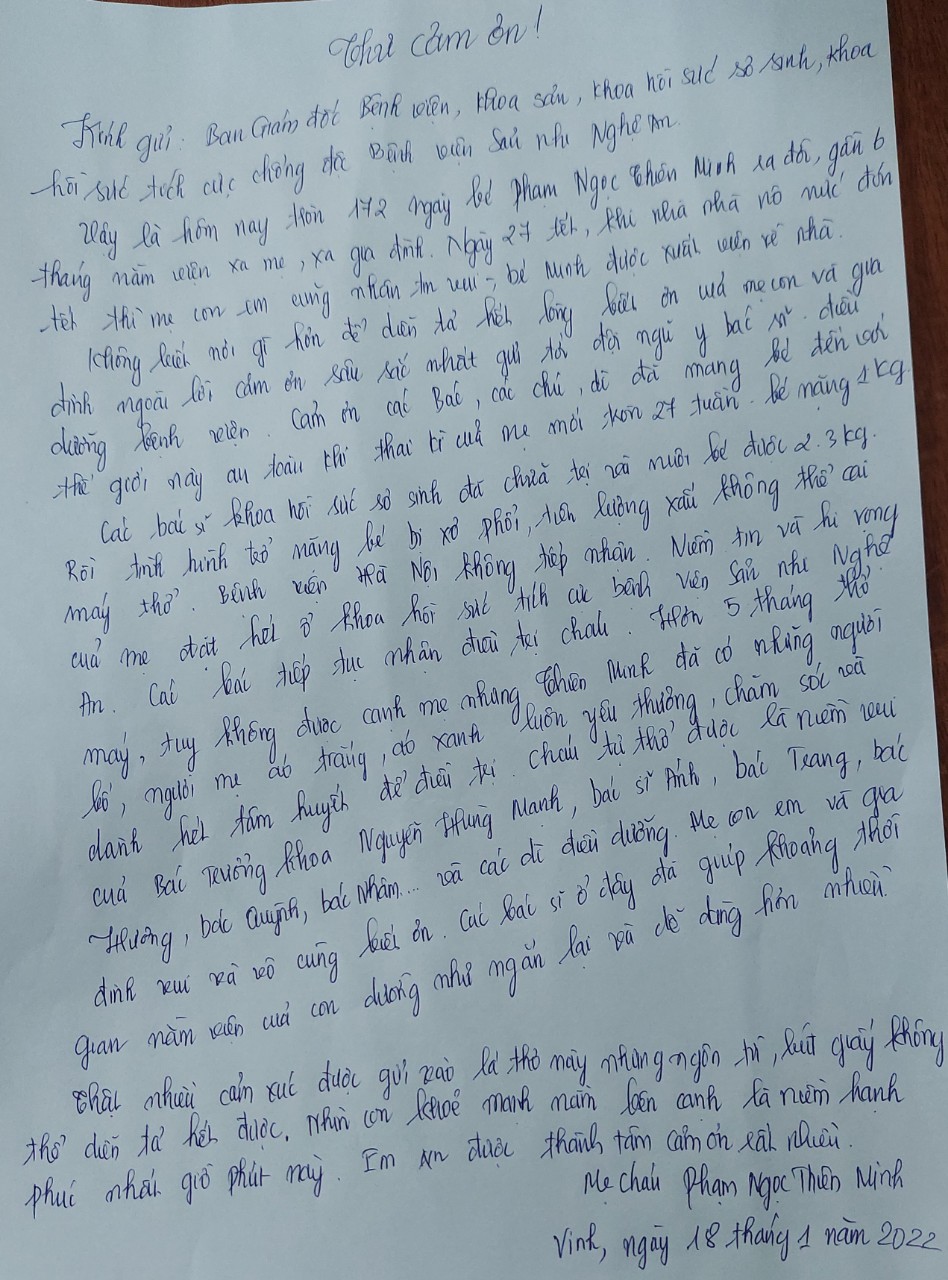 Thư cảm ơn!
Kính gửi: Ban Giám đốc Bệnh viện, khoa sản, khoa hồi sức sơ sinh, khoa
hồi sức tích cực chống độc Bệnh viện Sản nhi Nghệ An.
Vậy là hôm nay tròn 172 ngày bé Phạm Ngọc Thiên Minh ra đời, gần 6
tháng nằm viện xa mẹ, xa gia đình. Ngày 27 tết, khi nhà nhà nô nức đón
tết thì mẹ con em cũng nhận tin vui, bé Minh được xuất viện về nhà.
Không biết nói gì hơn để diễn tả hết lòng biết ơn của mẹ con và gia
đình ngoài lời cảm ơn sâu sắc nhất gửi tới đội ngũ y bác sĩ, điều
dưỡng bệnh viện. Cảm ơn các Bác, các chú, dì đã mang bé đến với
thế giới này an toàn khi thai kì của mẹ mới tròn 27 tuần. bé nặng 1kg.
Các bác sĩ khoa hồi sức sơ sinh đã chữa trị và nuôi bé được 2.3kg.
Rồi tình hình trở nặng bé bị xơ phổi, tiên lượng xấu không thể cai
máy thở. Bệnh viện Hà Nội không tiếp nhận. Niềm tin và hi vọng
của mẹ đặt hết ở khoa hồi sức tích cực bệnh viện Sản nhi Nghệ
An. Các bác tiếp tục nhận điều trị cháu. Hơn 5 tháng thở
máy, tuy không được cạnh mẹ nhưng Thiên Minh đã có những người
bố, người mẹ áo trắng, áo xanh luôn yêu thương, chăm sóc và
dành hết tâm huyết để điều trị. Cháu tự thở được là niềm vui
của Bác Trưởng khoa Nguyễn Hùng Mạnh, bác sĩ Ánh, bác Trang, bác
Hương, bác Quỳnh, bác Nhâm... và các dì điều dưỡng. Mẹ con em và gia
đình vui và vô cùng biết ơn. Các bác sĩ ở đây đã giúp khoảng thời
gian nằm viện của con dường như ngắn lại và dễ dàng hơn nhiều.
Thật nhiều cảm xúc được gửi vào lá thơ này nhưng ngôn từ, bút giấy không
thể diễn tả hết được. Nhìn con khoẻ mạnh nằm bên cạnh là niềm hạnh
phúc nhất giờ phút này. Em xin được thành tâm cảm ơn rất nhiều.
Mẹ cháu Phạm Ngọc Thiên Minh
Vinh, ngày 18 tháng 1 năm 2022